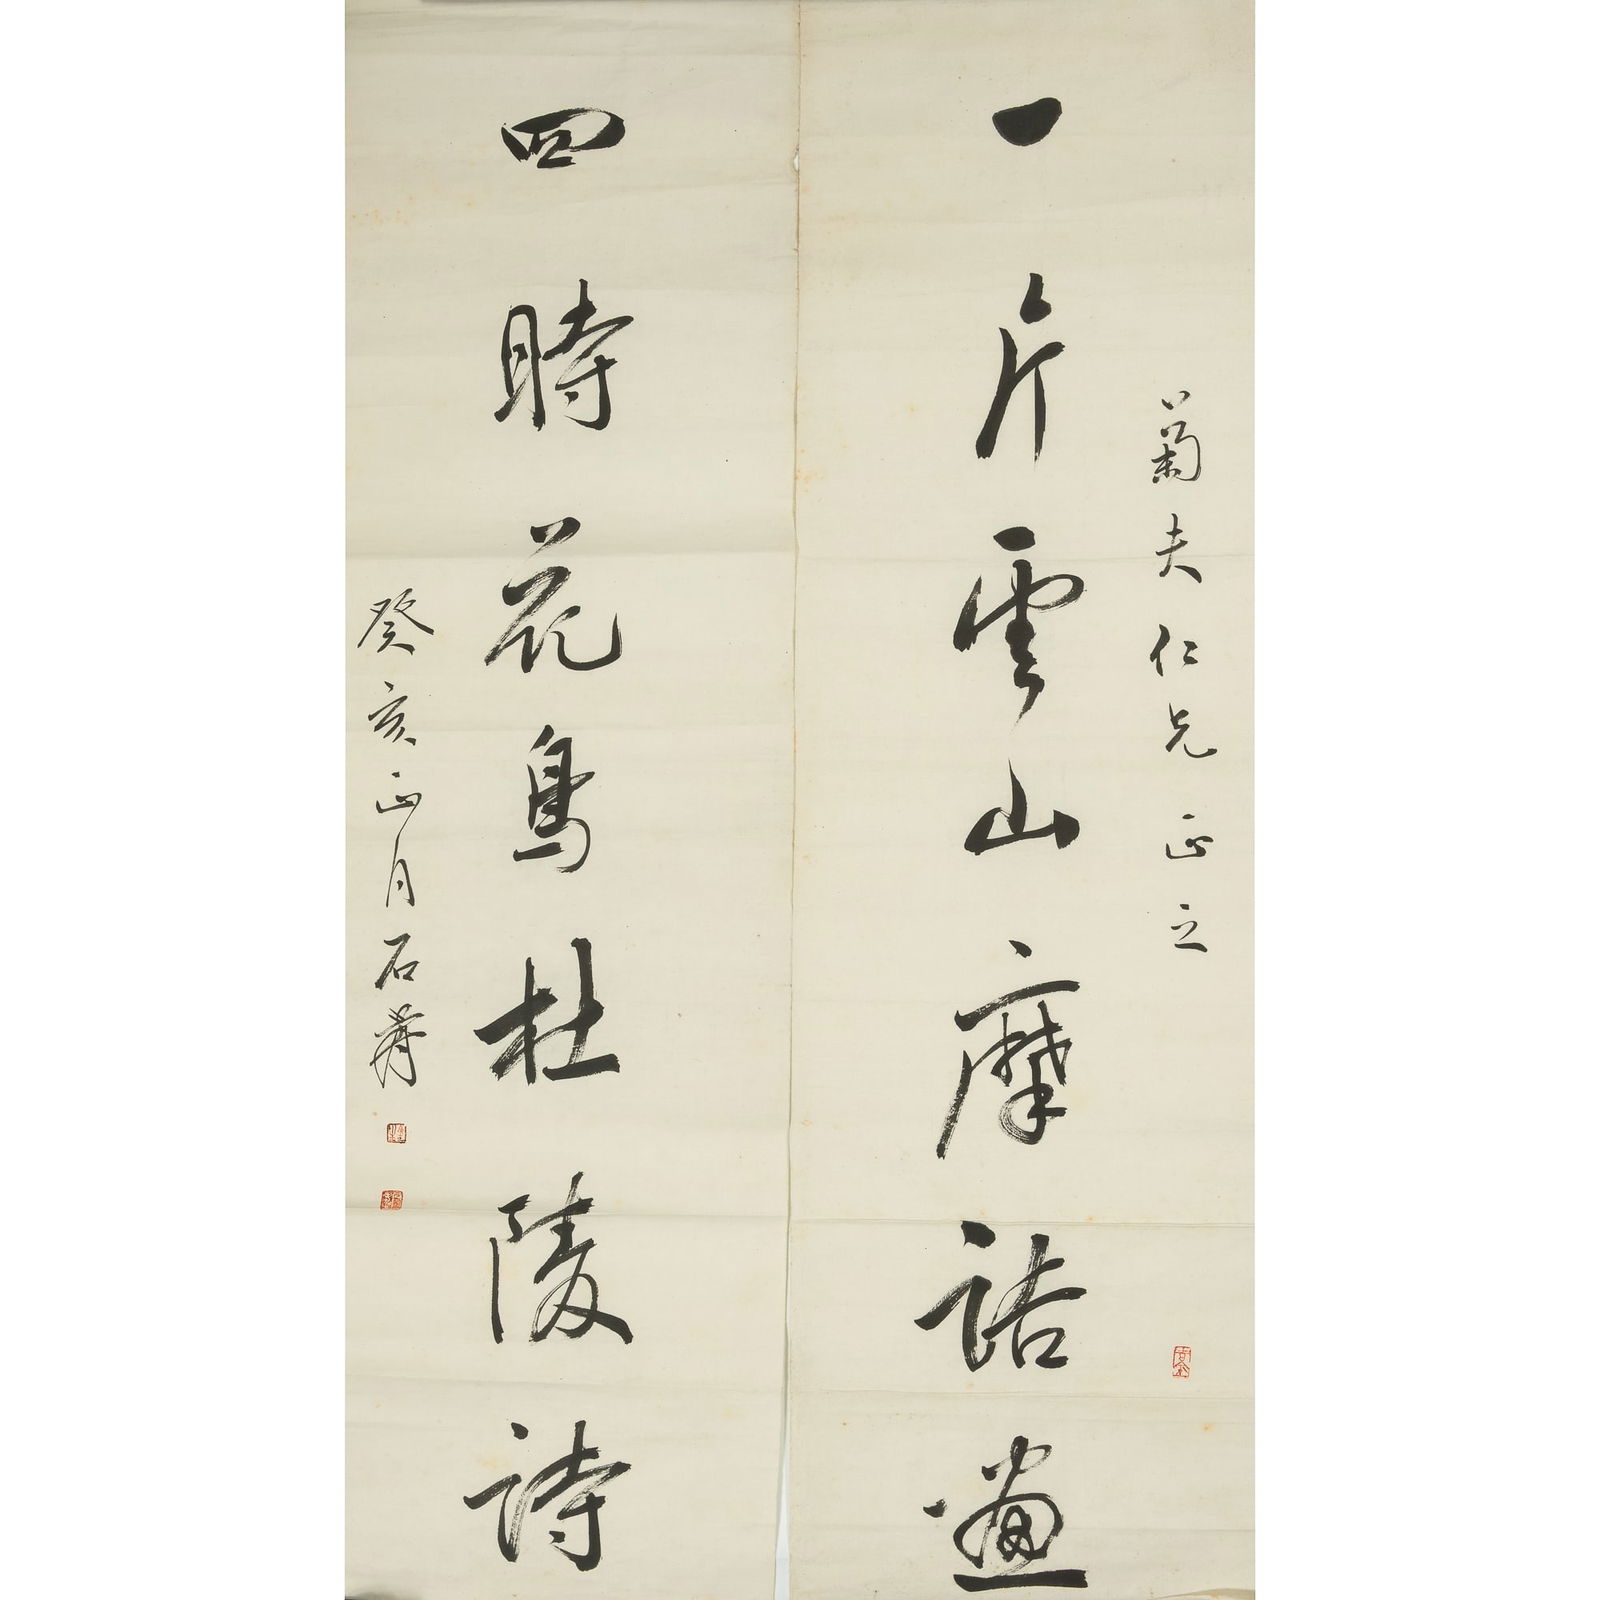 菊夫仁兄正之
一片雲山摩詰畫
四時花鳥杜陵詩
癸亥正月石